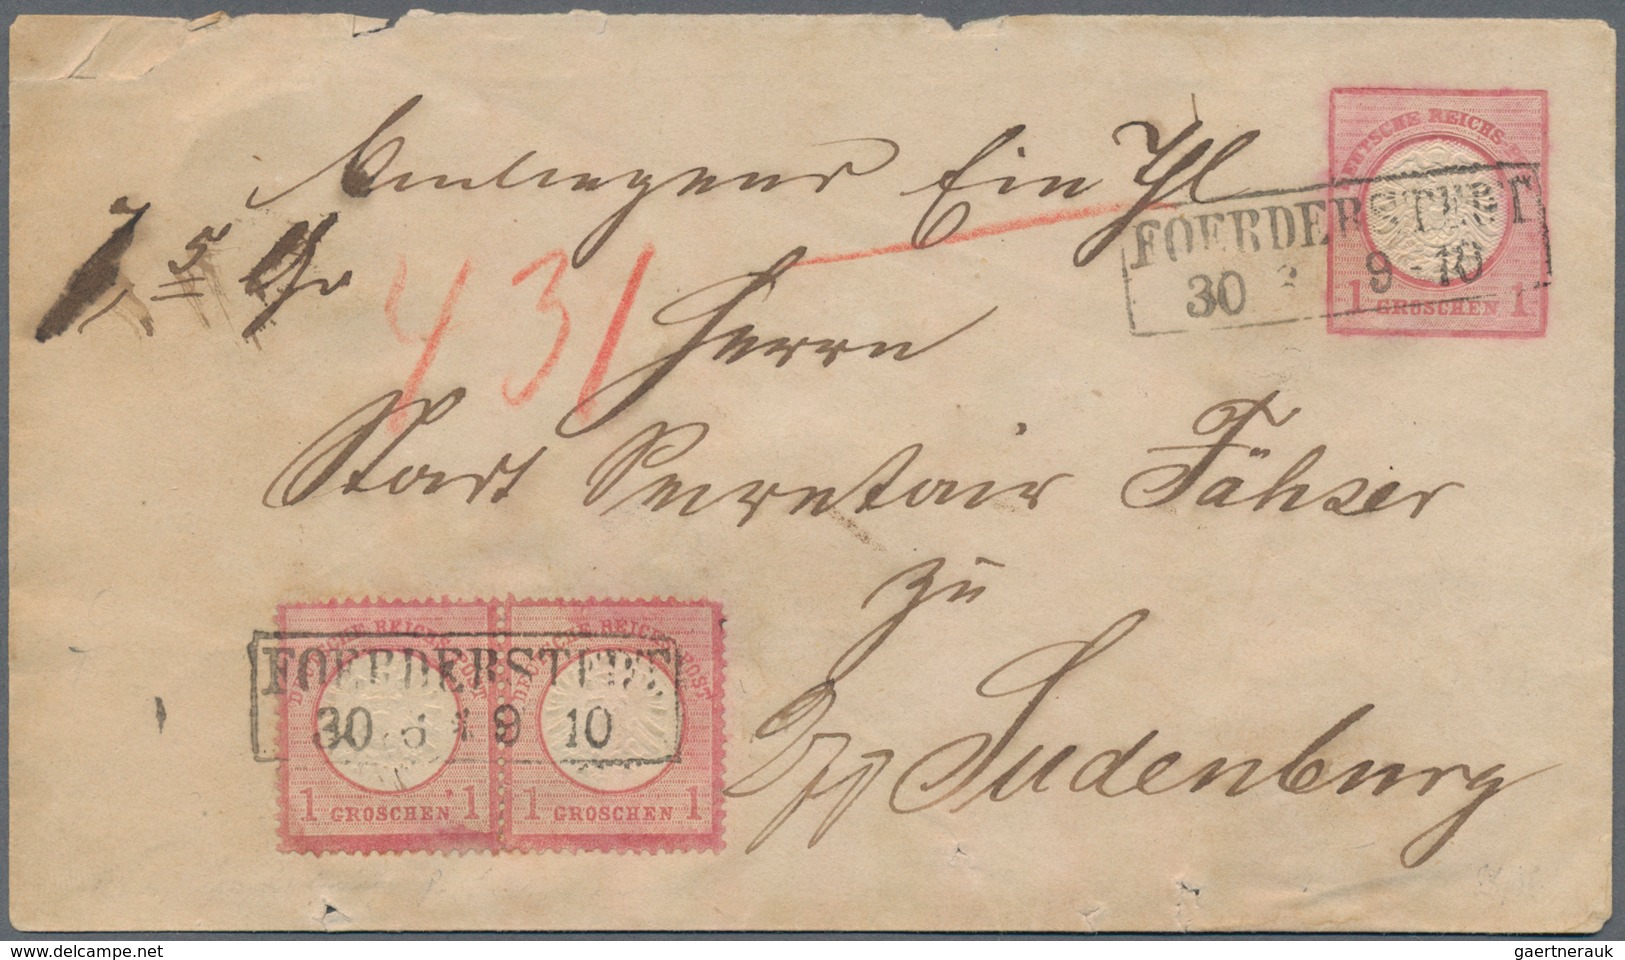 Einliegend Ein Thl
5
431
Herrn
Stadt Secretair Fähser
zu
Sudenburg
DEUTSCHE REICHS-POST
1 GROSCHEN 1
FOERDERSTEDT
30 9-10
DEUTSCHE REICHS-POST
DEUTSCHE REICHS-POST
FOERDERSTEDT
30 6 * 9 10
1 GROSCHEN 1
1 GROSCHEN 1
www.delcampe.net
gaertnerauk